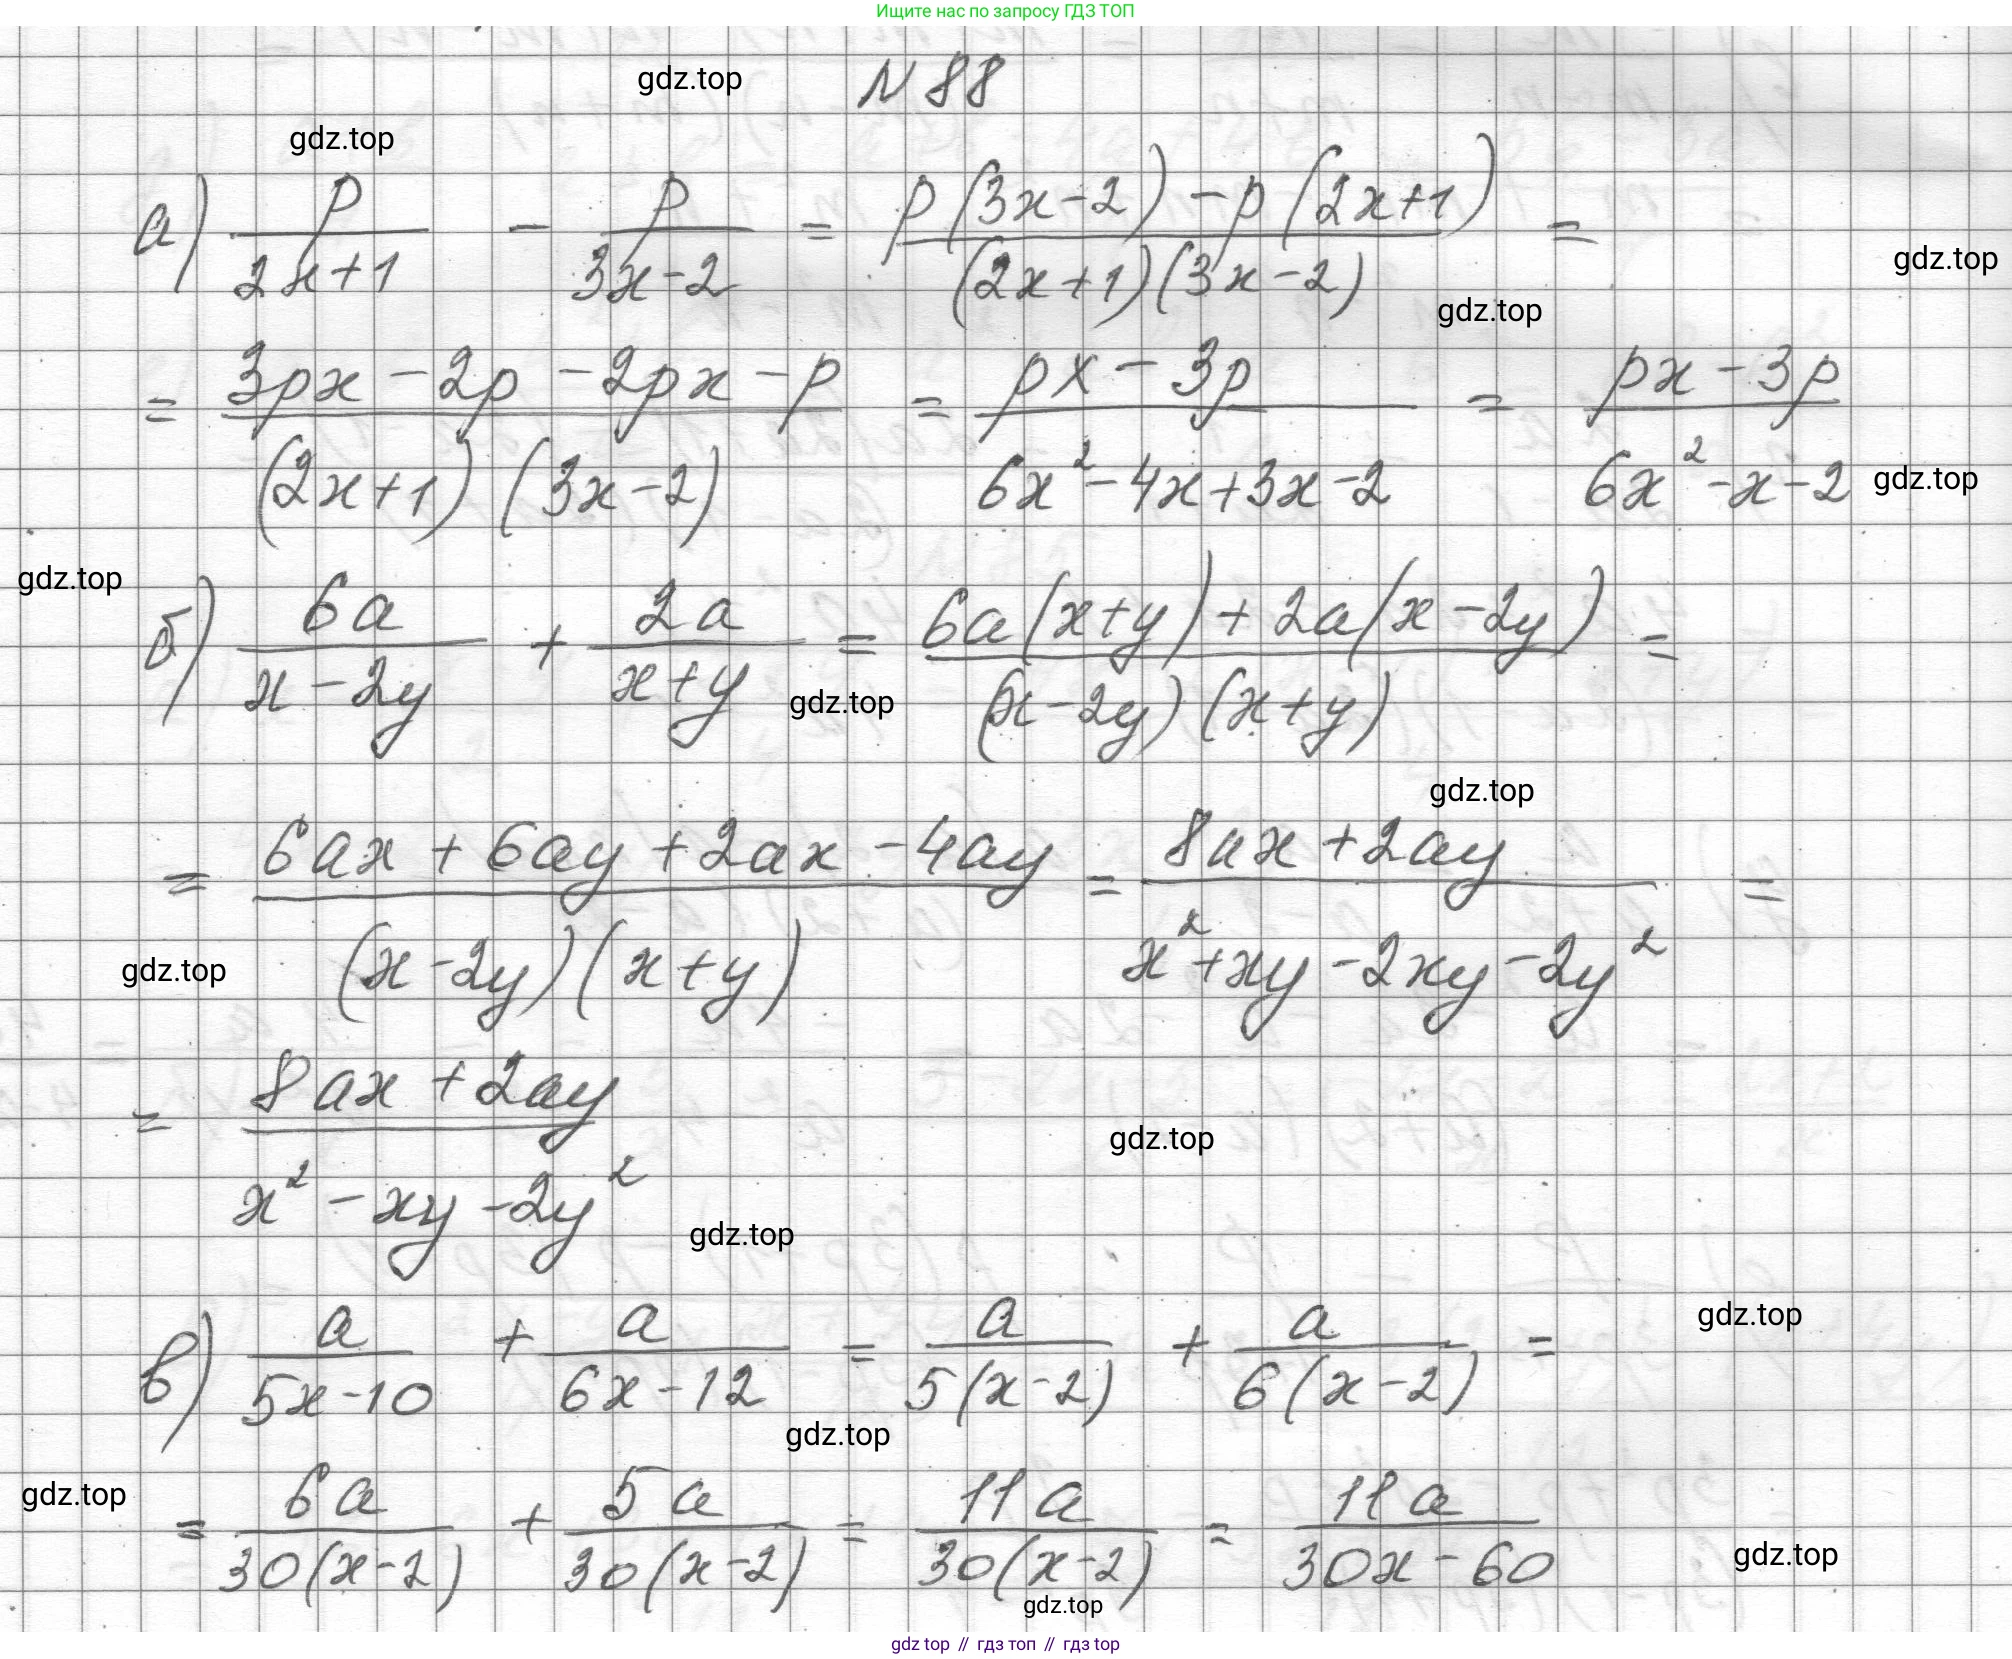 Ищите нас по запросу ГДЗ ТОП
gdz.top N 88
gdz.top
а) p/(2x+1) - p/(3x-2) = (p(3x-2)-p(2x+1))/((2x+1)(3x-2)) =
gdz.top
gdz.top
= (3px-2p-2px-p)/((2x+1)(3x-2)) = (px-3p)/(6x²-4x+3x-2) = (px-3p)/(6x²-x-2)
gdz.top
gdz.top
б) 6a/(x-2y) + 2a/(x+y) = (6a(x+y)+2a(x-2y))/((x-2y)(x+y)) =
gdz.top
gdz.top
= (6ax+6ay+2ax-4ay)/((x-2y)(x+y)) = (8ax+2ay)/(x²+xy-2xy-2y²) =
gdz.top
= (8ax+2ay)/(x²-xy-2y²)
gdz.top
gdz.top
gdz.top
в) a/(5x-10) + a/(6x-12) = a/(5(x-2)) + a/(6(x-2)) =
gdz.top
gdz.top
= 6a/(30(x-2)) + 5a/(30(x-2)) = 11a/(30(x-2)) = 11a/(30x-60)
gdz.top
gdz.top
gdz top // гдз топ // гдз top